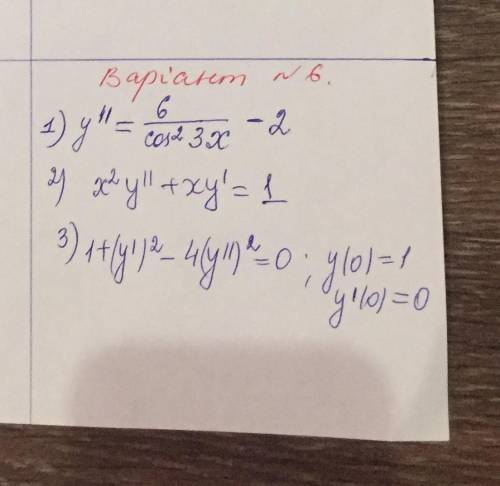 Варіант №6.
1) y'' = 6/cos² 3x - 2
2) x²y'' + xy' = 1
3) 1+(y')² - 4(y'')² = 0 ; y(0) = 1
y'(0) = 0